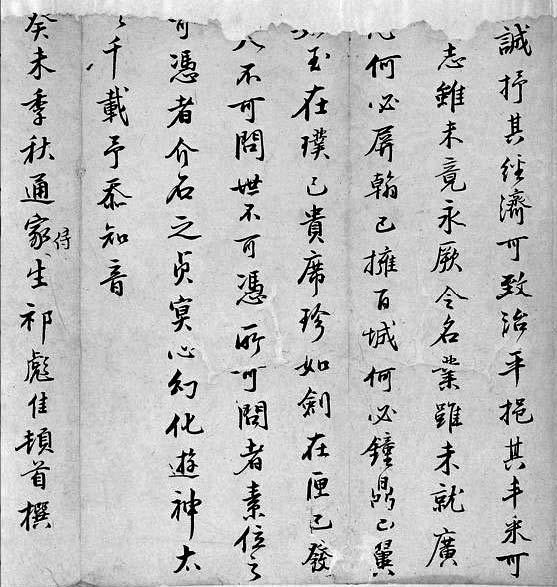 誠抒其經濟可致治平挹其丰采可
志雖未竟永厥令名業雖未就廣
何必屏翰已擁百城何必鐘鼎已翼
玉在璞已貴席珍如劍在匣已發
不可問世不可憑所可問者素位之
可憑者介石之貞冥心幻化遊神太
千載予忝知音
癸未季秋通家侍生祁彪佳頓首撰